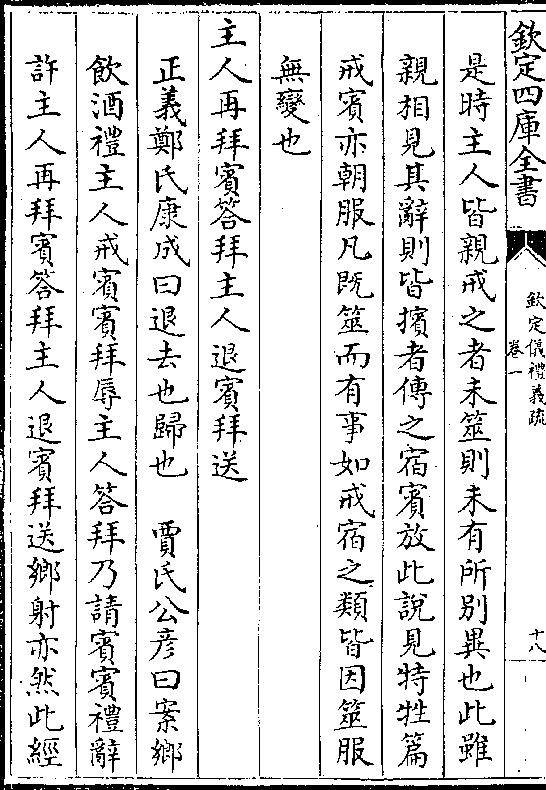 欽定四庫全書
欽定儀禮義疏
卷一
十八
是時主人皆親戒之者未筮則未有所別異也此雖
親相見其辭則皆擯者傳之宿賓放此說見特牲篇
戒賓亦朝服凡既筮而有事如戒宿之類皆因筮服
無變也
主人再拜賓答拜主人退賓拜送
正義鄭氏康成曰退去也歸也　賈氏公彥曰案鄉
飲酒禮主人戒賓賓拜辱主人答拜乃請賓賓禮辭
許主人再拜賓答拜主人退賓拜送鄉射亦然此經